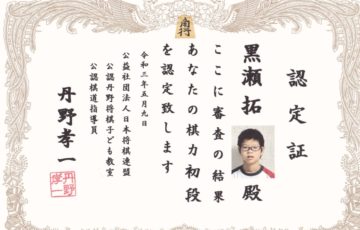 認定証
黒瀬拓殿
ここに審査の結果
あなたの棋力初段
を認定致します
令和三年五月九日
公益社団法人日本将棋連盟
公認丹野将棋子ども教室
公認棋道指導員
丹野孝一
丹野
孝一